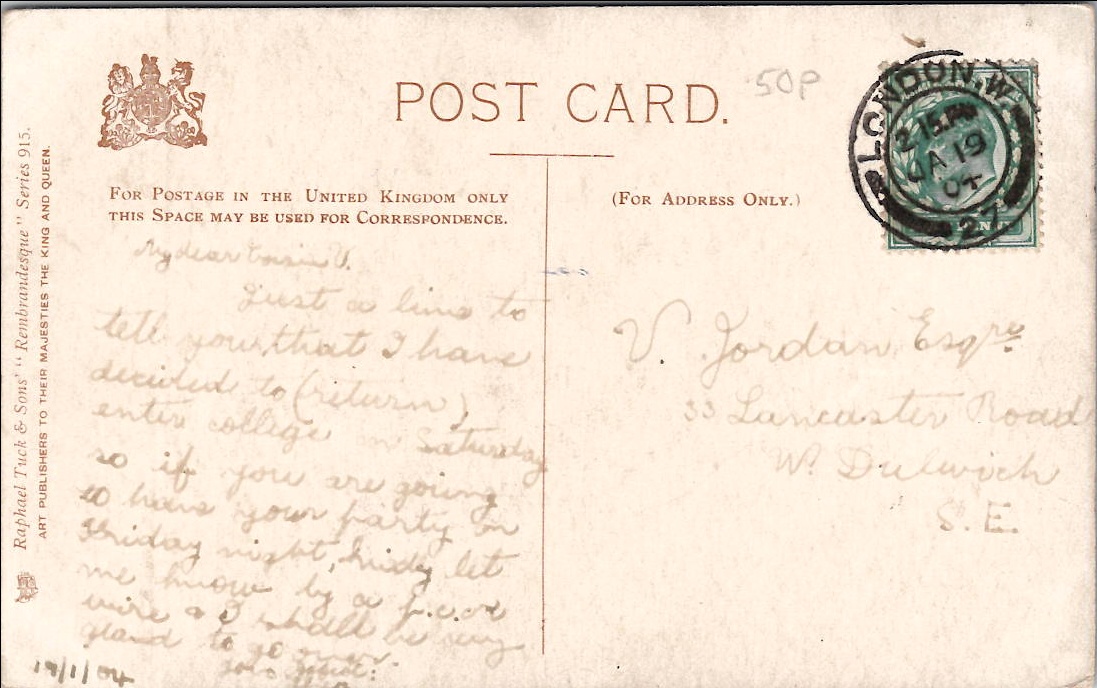 POST CARD.
50P
FOR POSTAGE IN THE UNITED KINGDOM ONLY
THIS SPACE MAY BE USED FOR CORRESPONDENCE.
(FOR ADDRESS ONLY.)
LONDON. W
2 15 PM
JA 19
04
27
Raphael Tuck & Sons' "Rembrandesque" Series 915.
ART PUBLISHERS TO THEIR MAJESTIES THE KING AND QUEEN.
My dear Cousin V.
Just a line to
tell you that I have
decided to (return)
enter college on Saturday
so if you are going
to have your party on
Friday night, let
me know by a p.c. or
wire & I shall be very
glad to go
19/1/04
V. Jordan Esqre.
33 Lancaster Road
W. Dulwich
S.E.